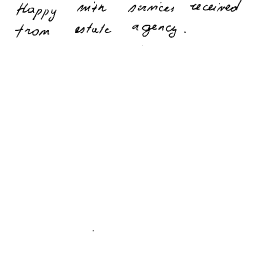 Happy with services received
from estate agency.